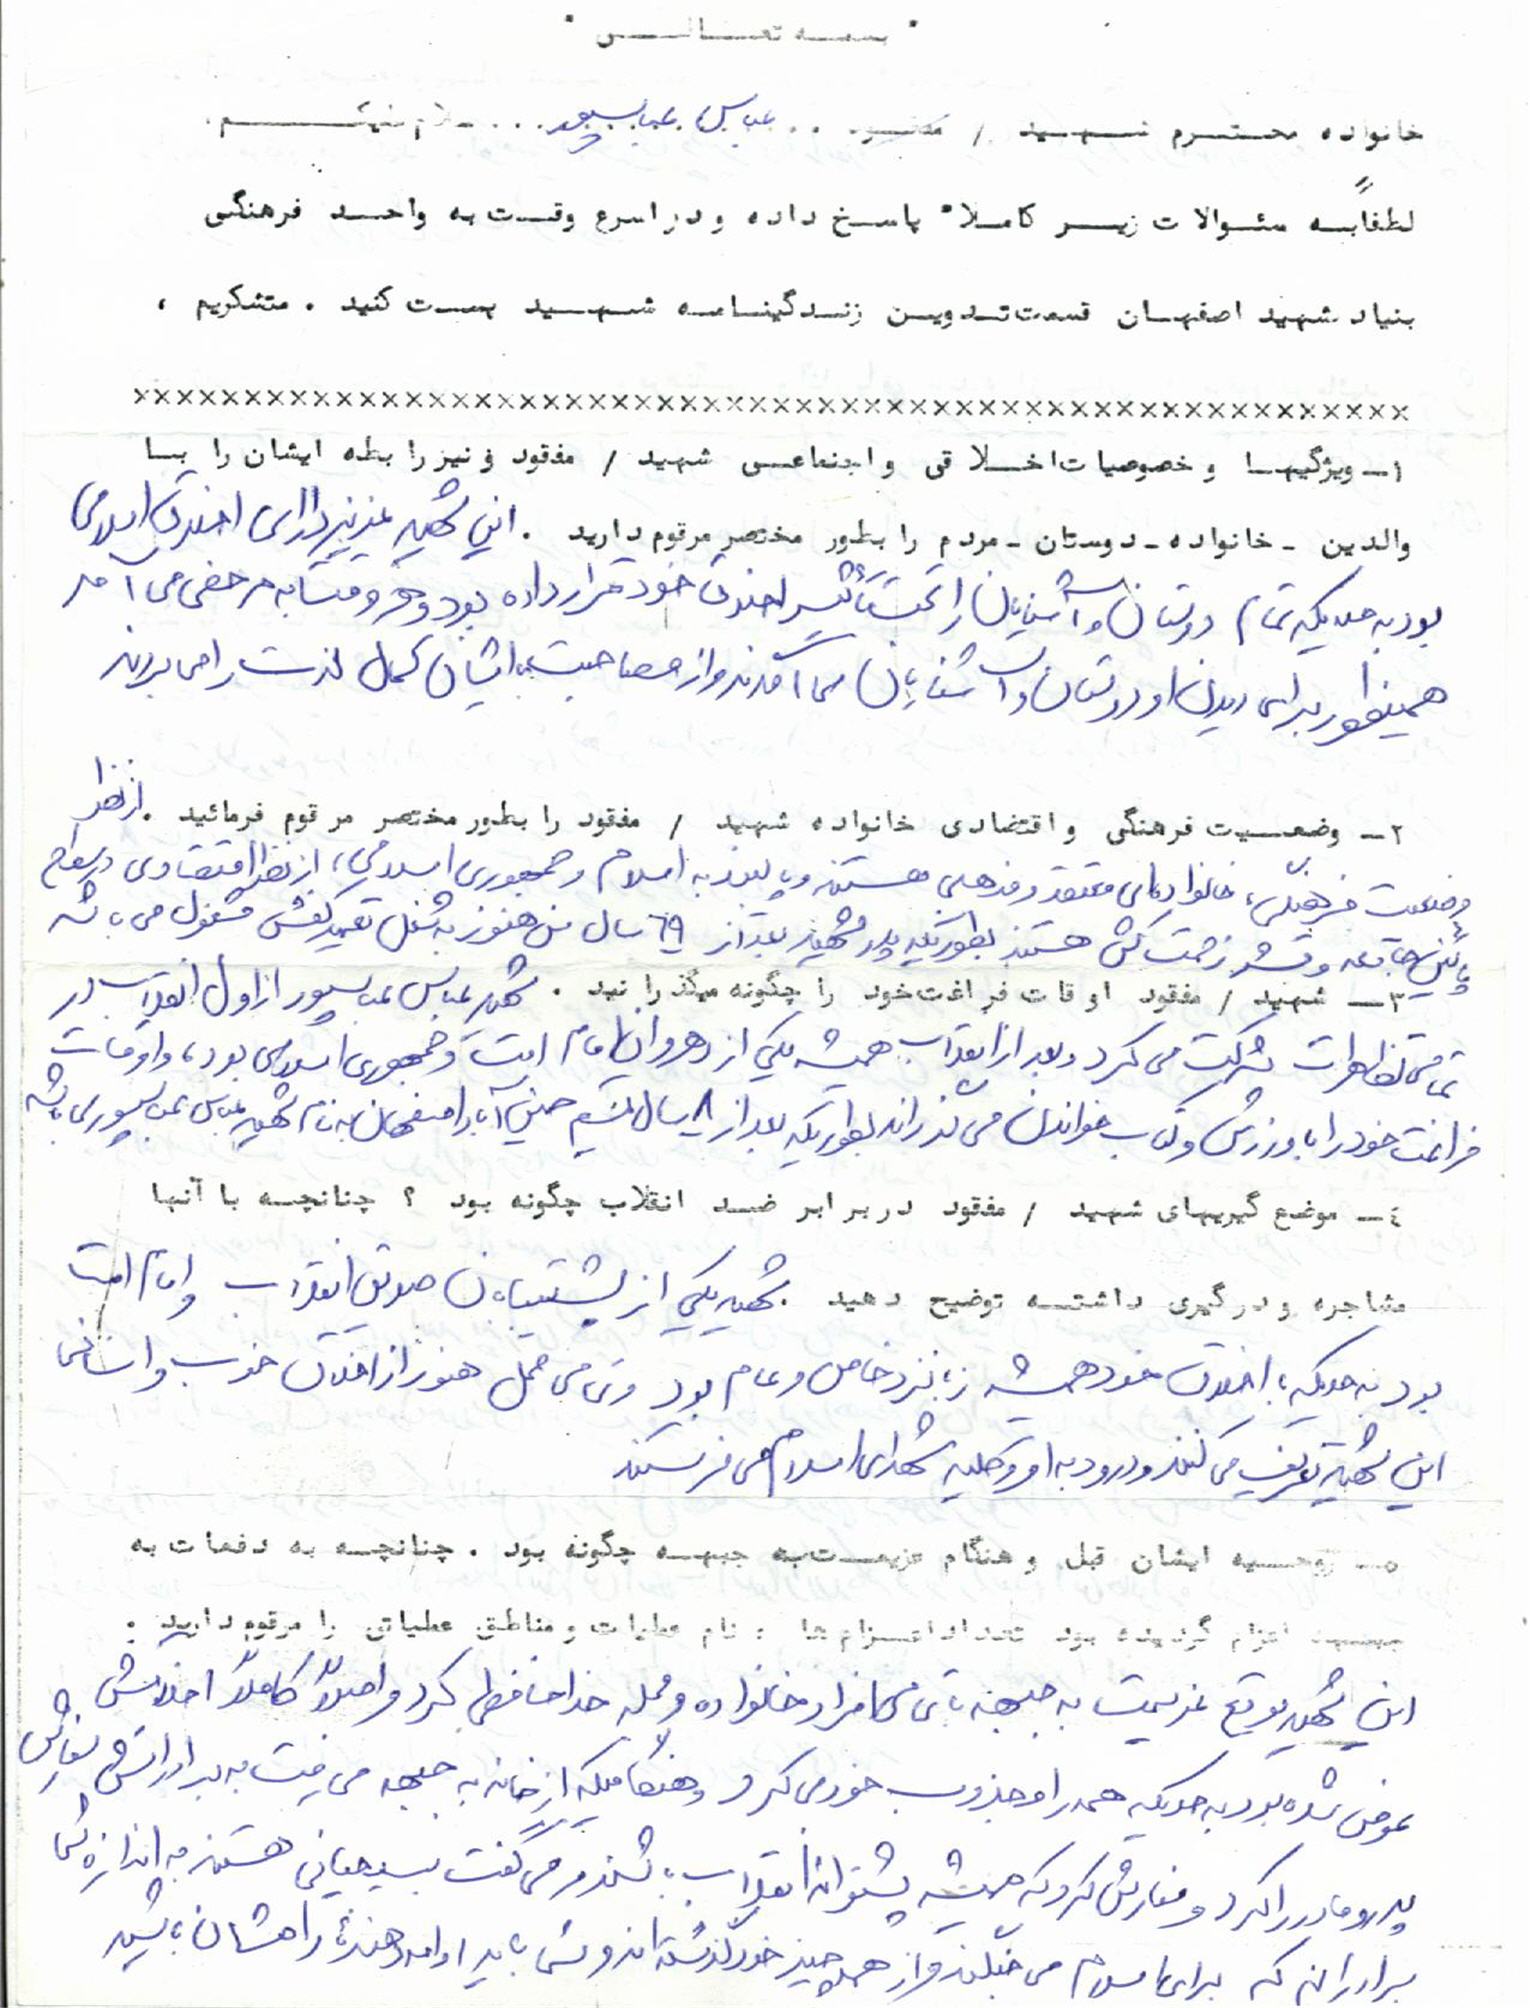 " بسمه تعالی "
خانواده محترم شهید / مفقود .. عباس عباسپور ... سلام علیکم.
لطفاً به سئوالات زیر کاملا" پاسخ داده و در اسرع وقت به واحد فرهنگی
بنیاد شهید اصفهان قسمت تدوین زندگینامه شهید پست کنید . متشکریم ،
××××××××××××××××××××××××××××××××××××××××××××××××××××××××
۱ـ ویژگیها و خصوصیات اخلاقی و اجتماعی شهید / مفقود و نیز رابطه ایشان را با
والدین ـ خانواده ـ دوستان ـ مردم را بطور مختصر مرقوم دارید . این شهید عزیز دارای اخلاق اسلامی
بود به حدیکه تمام دوستان و آشنایان را تحت تأثیر اخلاق خود قرار داده بود و هر وقت به مرخصی می آمد
همینطور برای دیدن او دوستان و آشنایان می آمدند و از مصاحبت با ایشان کمال لذت را می بردند
۲ـ وضعیت فرهنگی و اقتصادی خانواده شهید / مفقود را بطور مختصر مرقوم فرمائید . از نظر
وضعیت فرهنگی، خانواده‌ای معتقد و مذهبی هستند و پایبند به اسلام و جمهوری اسلامی، از نظر اقتصادی در سطح
پائین جامعه و قشر زحمت کش هستند بطوریکه پدر شهید بعد از ٦٩ سال سن هنوز به شغل تعمیر کفش مشغول می باشد
۳ـ شهید / مفقود اوقات فراغت خود را چگونه میگذرانید . شهید عباس عباسپور از اول انقلاب در
تمامی تظاهرات شرکت می کرد و بعد از انقلاب همیشه یکی از رهروان امام امت و جمهوری اسلامی بود، و اوقات
فراغت خود را با ورزش و کتاب خواندن می گذراند بطوریکه بعد از ۸ سال تیم حسین آباد اصفهان به نام شهید عباس عباسپور می باشد
٤ـ موضع گیریهای شهید / مفقود در برابر ضد انقلاب چگونه بود ؟ چنانچه با آنها
مشاجره و درگیری داشته توضیح دهید . شهید یکی از پشتیبانان صدیق انقلاب و امام امت
بود به حدیکه با اخلاق خود همیشه زبانزد خاص و عام بود و تمامی محل هنوز از اخلاق خوب و انسانی
این شهید تعریف می کنند و درود به او و کلیه شهدای اسلام می فرستند
٥ـ روحیه ایشان قبل و هنگام عزیمت به جبهه چگونه بود . چنانچه به دفعات به
جبهه اعزام گردیده بود تعداد اعزام ها ، نام عملیات و مناطق عملیاتی را مرقوم دارید .
این شهید موقع عزیمت به جبهه با تمامی افراد خانواده و محله خداحافظی کرد و اصلاً کاملاً اخلاقش
عوض شده بود به حدیکه همه را مجذوب خود می کرد و هنگامیکه از خانه به جبهه می رفت به برادرانش سفارش
پدر و مادر را کرد و سفارش کرد که همیشه پشتوانه انقلاب باشند و می گفت بسیجیانی هستند به اندازه
برادرانم که برای اسلام می جنگند و از همه چیز خود گذشته اند و شما باید ادامه دهندهٔ راهشان باشید